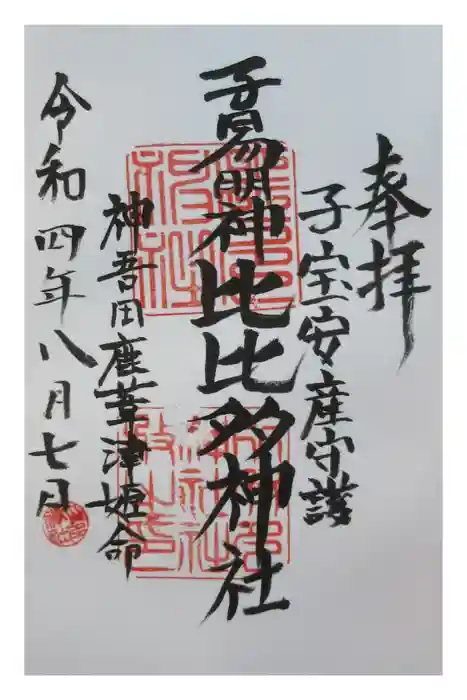 奉拝
子宝安産守護
子易明神比比多神社
神吾田鹿葦津姫命
令和四年八月七日